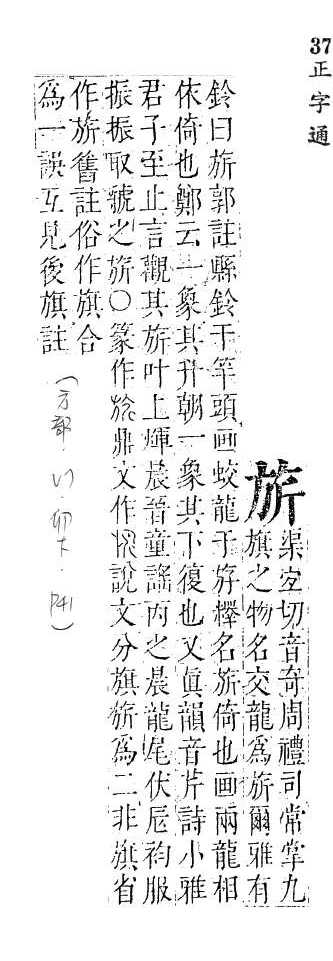 37
正字通
旂
渠宜切音奇周禮司常掌九
旗之物名交龍爲旂爾雅有
鈴曰旂郭註縣鈴于竿頭画蛟龍于斿樨名旂倚也画兩龍相
依倚也鄭云一象其升朝一象其下復也又眞韻音芹詩小雅
君子至止言觀其旂叶上煇晨晉童謠丙之晨龍尾伏辰袀服
振振取虢之旂○篆作旂鼎文作說文分旗旂爲二非旗省
作旂舊註俗作旗合
爲一誤互見後旗註
(方部.
P41)